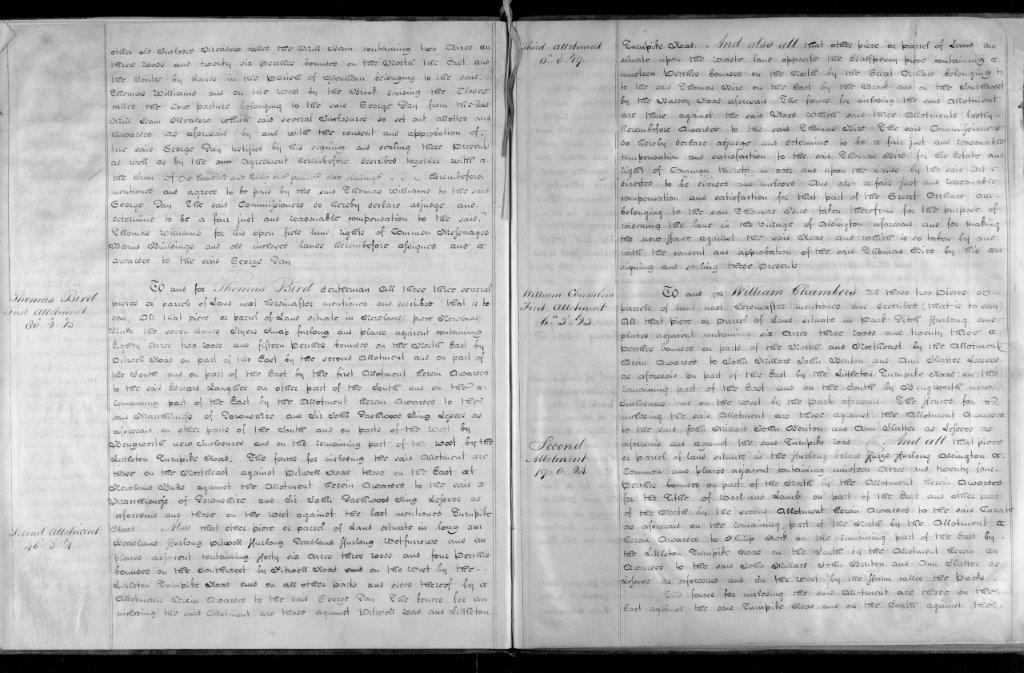 other old Inclosed Meadow called the Mill Ham containing two Acres an
three roods and twenty six Perches bounded on the North the East and
the South by Lands in the Parish of Offenham belonging to the said
Thomas Williams and on the West by the Brook dividing the Closes
called the Cow pasture belonging to the said George Day from the said
Mill Ham Meadow which said several Inclosures so set out allotted and
awarded as aforesaid by and with the consent and approbation of
the said George Day testified by his signing and sealing these Presents
as well as by the Agreement hereinbefore described together with a
the Sum of One hundred and thirty one pounds hereinbefore
mentioned and agreed to be paid by the said Thomas Williams to the said
George Day The said Commissioners do hereby declare adjudge and
determine to be a fair just and reasonable compensation to the said
Thomas Williams for his open field land rights of Common Messuages
Barns Buildings and old inclosed lands hereinbefore assigned and a
awarded to the said George Day
Thomas Bird
First Allotment
80..2..15
To and for Thomas Bird Gentleman All those three several
pieces or parcels of Land next hereinafter mentioned and described (that is to
say) All that piece or parcel of Land situate in
the seven Lands furlong and places adjacent containing
Eighty Acres two roods and fifteen Perches bounded on the North East by
Pitwell Road on part of the East by the second Allotment and on part of
the South and on part of the East by the first Allotment herein Awarded
to the said Edward Laugher on other part of the South and on the a
remaining part of the East by the Allotment herein Awarded to the
said Marchioness of Downshire and Sir John Dashwood King Lessees as
aforesaid on other parts of the South and on parts of the West by
Bengworth new Inclosures and on the remaining part of the West by the
Littleton Turnpike Road. The fences for inclosing the said Allotment are
those on the Northeast against Pitwell Road those on the East at
against the Allotment herein Awarded to the said a
Marchioness of Downshire and Sir John Dashwood King Lessees as
aforesaid and those on the West against the last mentioned Turnpike
Second Allotment
46..3..4
Road Also that other piece or parcel of Land situate in long
furlong Pitwell furlong furlong and
places adjacent containing forty six Acres three roods and four Perches
bounded on the Southwest by Pitwell Road and on the West by the
Littleton Turnpike Road and on all other parts and sides thereof by a
Allotments herein Awarded to the said George Day The fences for
inclosing the said Allotment are those against Pitwell road and Littleton
Third allotment
0..0..19
Turnpike Road. And also all that other piece or parcel of Land
situate upon the Waste land opposite the Halfpenny piece containing a
nineteen Perches bounded on the North by the Great Orchard belonging to
to the said Thomas Bird on the East by the Brook and on the Southwest
by the Badsey Road aforesaid The fences for inclosing the said Allotment
are those against the said Road Which said three Allotments lastly
hereinbefore Awarded to the said Thomas Bird The said Commissioners
do hereby declare adjudge and determine to be a fair just and reasonable
compensation and satisfaction to the said Thomas Bird for his Estate and
right of Common thereto in over and upon the Lands by the said Act
directed to be divided and inclosed And also a fair just and reasonable
compensation and satisfaction for that part of the Great Orchard
belonging to the said Thomas Bird taken therefrom for the purpose of
widening the lane in the Village of Aldington aforesaid and for making
the new fence against the said Road and which is so taken by and
with the consent and approbation of the said Thomas Bird by his
signing and sealing these Presents
William Chambers
First Allotment
6..3..23
To and for William Chambers All those two Pieces or
parcels of land next hereinafter mentioned and described (that is to say)
All that piece or Parcel of Land situate in furlong and
places adjacent containing six Acres three roods and twenty three a
Perches bounded on parts of the North and Northeast by the Allotment
herein Awarded to John Millard John Benton and Ann Slatter Lessees
as aforesaid on part of the East by the Littleton Turnpike Road on the
remaining part of the East and on the South by Bengworth new
Inclosures and on the West by the Park aforesaid The fences for
inclosing the said Allotment are those against the Allotment Awarded
to the said John Millard John Benton and Ann Slatter as Lessees as
aforesaid and against the said Turnpike road And all that piece
Second
Allotment
19..0..24
or parcel of land situate in the furlong below Furze furlong Aldington a
Common and places adjacent containing nineteen Acres and twenty four
Perches bounded on part of the North by the Allotment herein Awarded
for the Tithe of Wool and Lamb on part of the East and other part
of the North by the second Allotment herein Awarded to the said Curate
as aforesaid on the remaining part of the North by the Allotment a
herein Awarded to Philip on the remaining part of the East by
the Littleton Turnpike Road on the South by the Allotment herein
Awarded to the said John Millard John Benton and Ann Slatter as
Lessees as aforesaid and on the West by the Farm called the Parks
The fences for inclosing the said Allotment are those on the
East against the said Turnpike Road and on the South against the